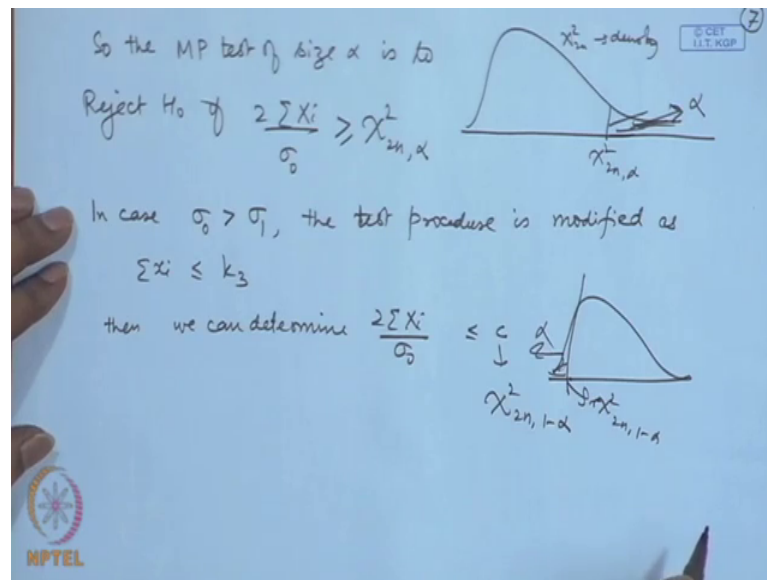 7
© CET
I.I.T. KGP
So the MP test of size α is to
Reject H₀ if 2 Σ Xi / σ₀ ≥ χ²₂ₙ,α
χ²₂ₙ → density
α
χ²₂ₙ,α
In case σ₀ > σ₁, the test procedure is modified as
Σxi ≤ k₃
then we can determine 2Σ Xi / σ₀ ≤ c
↓
χ²₂ₙ,₁₋α
α
χ²₂ₙ,₁₋α
NPTEL